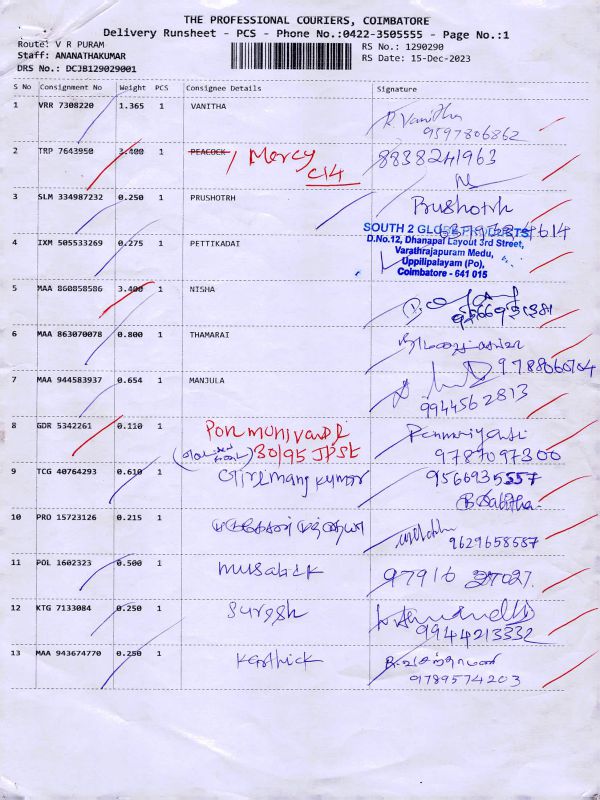 THE PROFESSIONAL COURIERS, COIMBATORE
Delivery Runsheet - PCS - Phone No.:0422-3505555 - Page No.:1
Route: V R PURAM
RS No.: 1290290
Staff: ANANATHAKUMAR
RS Date: 15-Dec-2023
DRS No.: DCJB129029001
S No Consignment No Weight PCS Consignee Details Signature
1 VRR 7308220 1.365 1 VANITHA R. Vanitha
9597806862
2 TRP 7643950 3.400 1 PEACOCK / Mercy 8838241963
C14
3 SLM 334987232 0.250 1 PRUSHOTRH Prushotrh
SOUTH 2 GLOBE PRODUCTS
D.No.12, Dhanapal Layout 3rd Street,
4 IXM 505533269 0.275 1 PETTIKADAI Varathrajapuram Medu,
Uppilipalayam (Po),
Coimbatore - 641 015
5 MAA 860858586 3.400 1 NISHA
6 MAA 863070078 0.800 1 THAMARAI
9788060704
7 MAA 944583937 0.654 1 MANJULA
9944562813
8 GDR 5342261 0.110 1
30/95 JPSE 9787097300
9 TCG 40764293 0.610 1 9566935557
B Sabitha
10 PRO 15723126 0.215 1
9629658587
11 POL 1602323 0.500 1 97916 27027
12 KTG 7133084 0.250 1 Suresh
9944213332
13 MAA 943674770 0.250 1 Karthick
9789574203